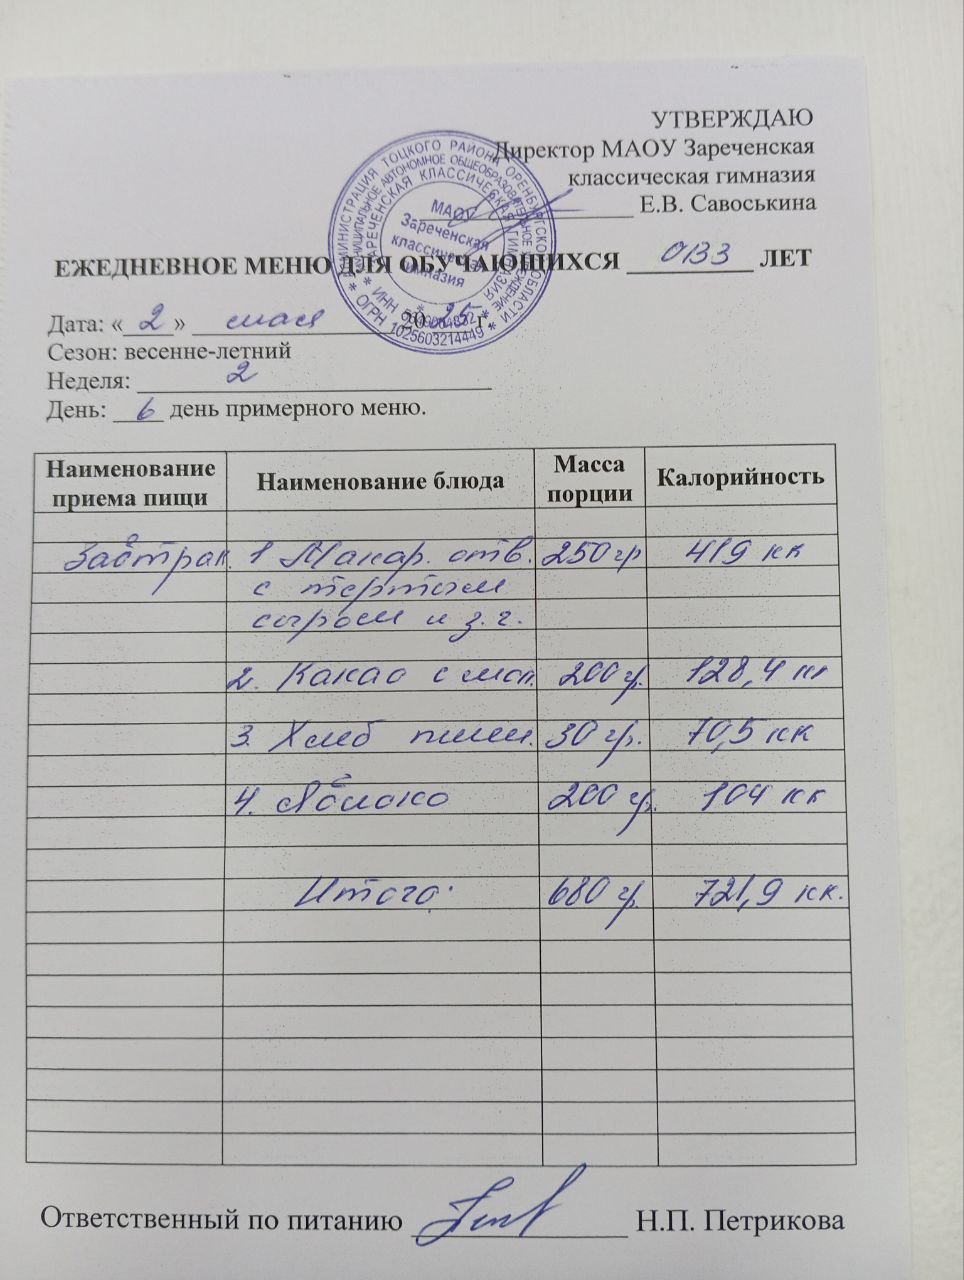 УТВЕРЖДАЮ
Директор МАОУ Зареченская
классическая гимназия
Е.В. Савоськина
АДМИНИСТРАЦИЯ ТОЦКОГО РАЙОНА ОРЕНБУРГСКОЙ ОБЛАСТИ
МУНИЦИПАЛЬНОЕ АВТОНОМНОЕ ОБЩЕОБРАЗОВАТЕЛЬНОЕ УЧРЕЖДЕНИЕ
ЗАРЕЧЕНСКАЯ КЛАССИЧЕСКАЯ ГИМНАЗИЯ
МАОУ
Зареченская
классическая
гимназия
ОГРН 1025603214449
ЕЖЕДНЕВНОЕ МЕНЮ ДЛЯ ОБУЧАЮЩИХСЯ ОВЗ ЛЕТ
Дата: «2» мая 2025 г.
Сезон: весенне-летний
Неделя: 2
День: 6 день примерного меню.
Наименование приема пищи Наименование блюда Масса порции Калорийность
Завтрак. 1 Макар. отв. 250 гр 419 кк
с тертым
сыром и з.г.
2. Какао с мол. 200 гр. 128,4 кк
3. Хлеб пшен. 30 гр. 70,5 кк
4. Яблоко 200 гр. 104 кк
Итого: 680 гр 721,9 кк.
Ответственный по питанию Н.П. Петрикова